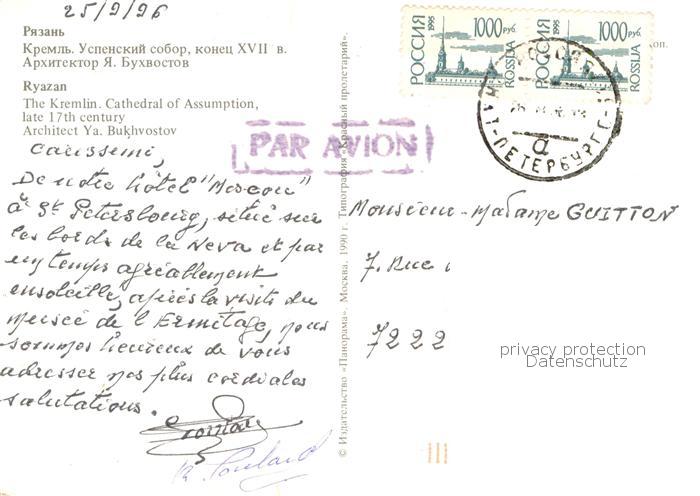 25/9/96
Рязань
Кремль. Успенский собор, конец XVII в.
Архитектор Я. Бухвостов
Ryazan
The Kremlin. Cathedral of Assumption,
late 17th century
Architect Ya. Bukhvostov
PAR AVION
Carissimi,
De notre hôtel "Moscou"
à St Petersbourg, situé sur
les bords de la Neva et par
un temps agréablement
ensoleillé, après la visite du
musée de l'Ermitage, nous
sommes heureux de vous
adresser nos plus cordiales
salutations.
© Издательство «Панорама». Москва. 1990 г. Типография «Красный пролетарий».
РОССИЯ 1995 1000 руб. ROSSIJA
РОССИЯ 1995 1000 руб. ROSSIJA
коп.
С-ПЕТЕРБУРГ
а
Monsieur-Madame GUITTON
7. Rue
7222
privacy protection
Datenschutz